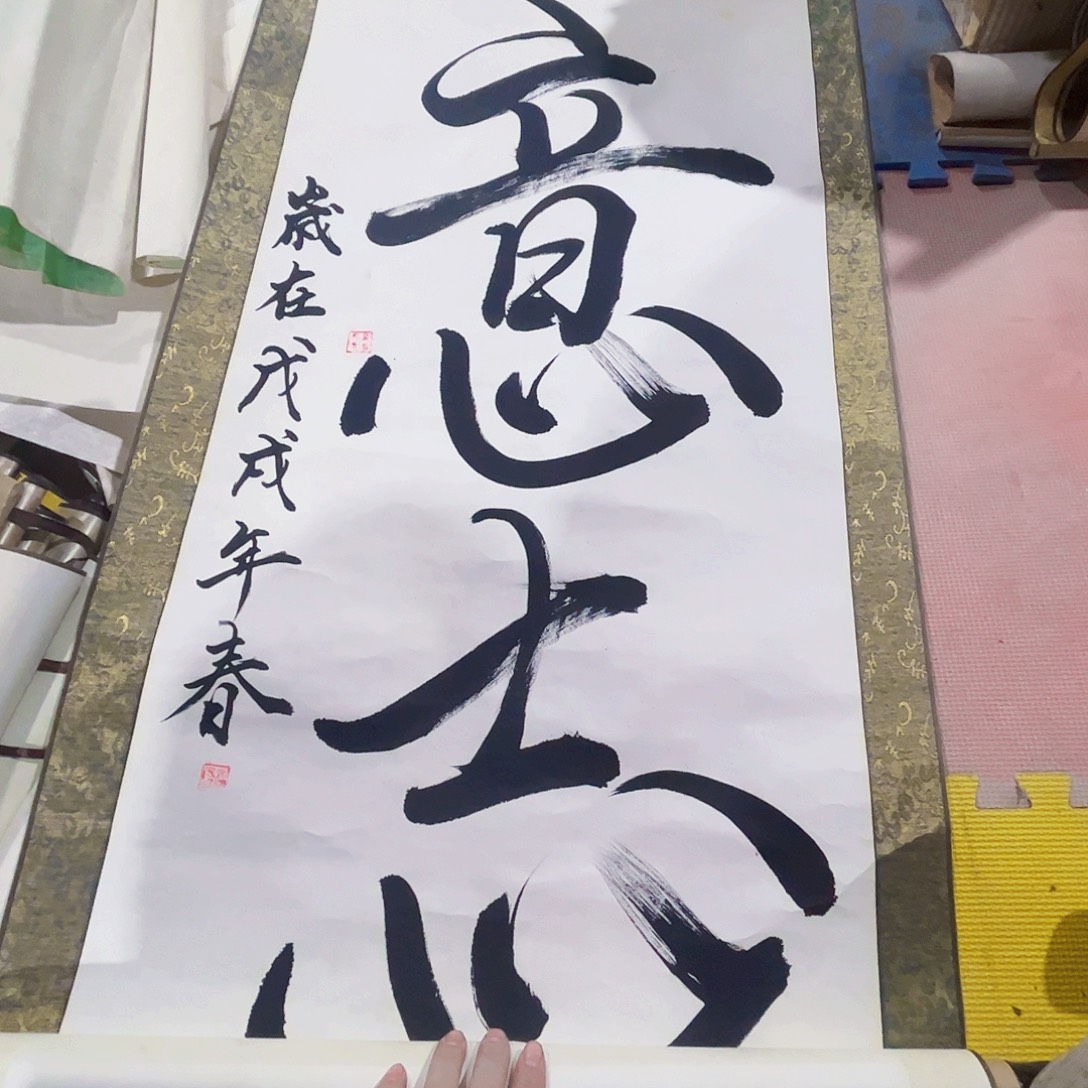 意志
歲在戊戌年春